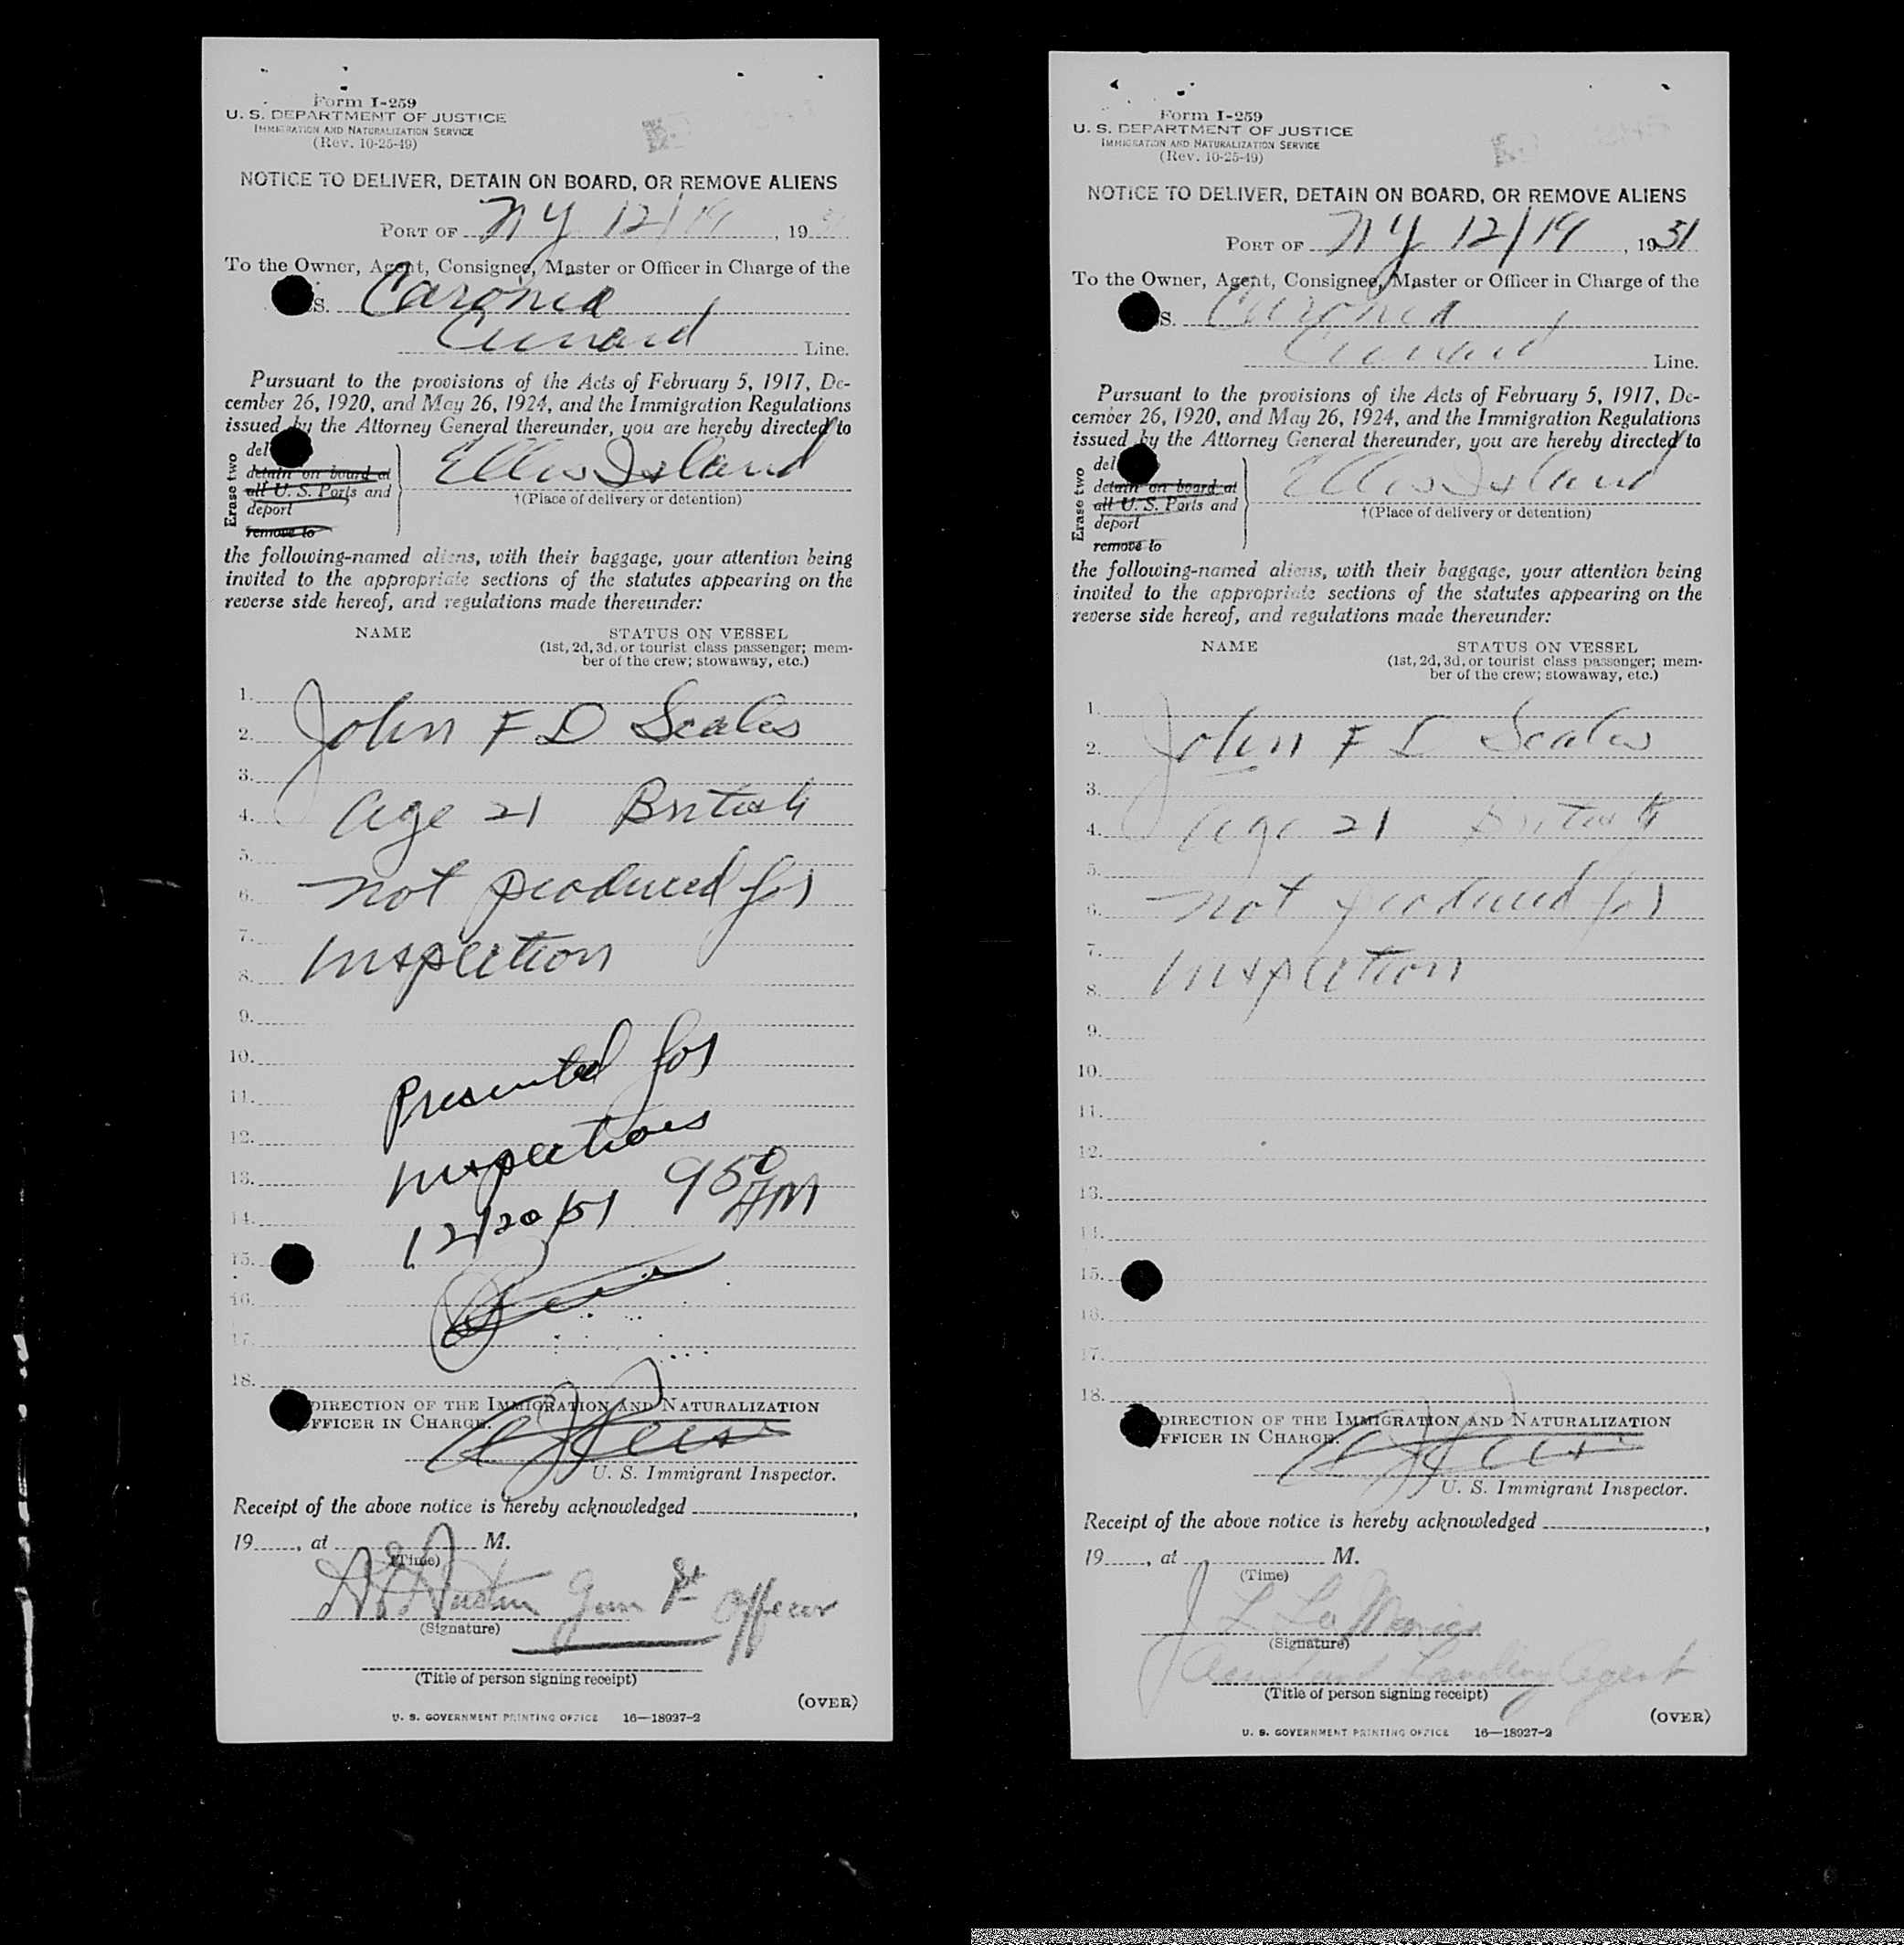 Form I-259
U. S. DEPARTMENT OF JUSTICE
IMMIGRATION AND NATURALIZATION SERVICE
(Rev. 10-25-49)
NOTICE TO DELIVER, DETAIN ON BOARD, OR REMOVE ALIENS
PORT OF NY 12/19, 19
To the Owner, Agent, Consignee, Master or Officer in Charge of the
S. Caronia
Cunard Line.
Pursuant to the provisions of the Acts of February 5, 1917, De-
cember 26, 1920, and May 26, 1924, and the Immigration Regulations
issued by the Attorney General thereunder, you are hereby directed to
Erase two
del
detain on board at
all U. S. Ports and
deport
remove to
Ellis Island
†(Place of delivery or detention)
the following-named aliens, with their baggage, your attention being
invited to the appropriate sections of the statutes appearing on the
reverse side hereof, and regulations made thereunder:
NAME STATUS ON VESSEL
(1st, 2d, 3d, or tourist class passenger; mem-
ber of the crew; stowaway, etc.)
1.
2. John F D Scales
3.
4. age 21 British
5.
6. not produced for
7.
8. inspection
9.
10. Presented for
11.
12. inspection
13. 9 50 AM
14. 12/20/51
15.
16.
17.
18.
DIRECTION OF THE IMMIGRATION AND NATURALIZATION
FFICER IN CHARGE.
U. S. Immigrant Inspector.
Receipt of the above notice is hereby acknowledged
19 , at M.
(Time)
Austin Jun 1st Officer
(Signature)
(Title of person signing receipt)
(OVER)
U. S. GOVERNMENT PRINTING OFFICE 16—18927-2
Form I-259
U. S. DEPARTMENT OF JUSTICE
IMMIGRATION AND NATURALIZATION SERVICE
(Rev. 10-25-49)
NOTICE TO DELIVER, DETAIN ON BOARD, OR REMOVE ALIENS
PORT OF NY 12/19, 1951
To the Owner, Agent, Consignee, Master or Officer in Charge of the
S. Caronia
Cunard Line.
Pursuant to the provisions of the Acts of February 5, 1917, De-
cember 26, 1920, and May 26, 1924, and the Immigration Regulations
issued by the Attorney General thereunder, you are hereby directed to
Erase two
del
detain on board at
all U. S. Ports and
deport
remove to
Ellis Island
†(Place of delivery or detention)
the following-named aliens, with their baggage, your attention being
invited to the appropriate sections of the statutes appearing on the
reverse side hereof, and regulations made thereunder:
NAME STATUS ON VESSEL
(1st, 2d, 3d, or tourist class passenger; mem-
ber of the crew; stowaway, etc.)
1.
2. John F D Scales
3.
4. age 21 British
5.
6. not produced for
7.
8. inspection
9.
10.
11.
12.
13.
14.
15.
16.
17.
18.
DIRECTION OF THE IMMIGRATION AND NATURALIZATION
FFICER IN CHARGE.
U. S. Immigrant Inspector.
Receipt of the above notice is hereby acknowledged
19 , at M.
(Time)
J L
(Signature)
Assistant Landing Agent
(Title of person signing receipt)
(OVER)
U. S. GOVERNMENT PRINTING OFFICE 16—18927-2